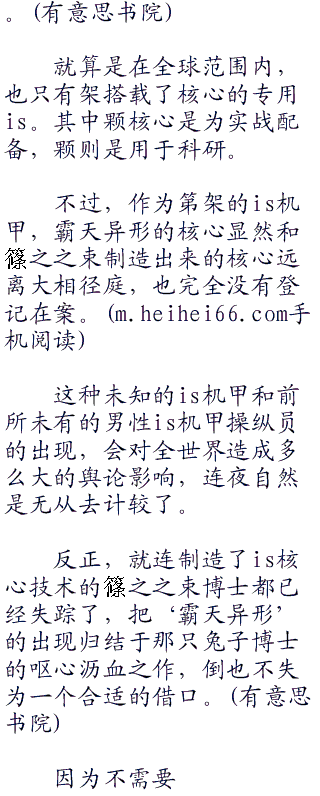 。(有意思书院)
就算是在全球范围内，
也只有架搭载了核心的专用
is。其中颗核心是为实战配
备，颗则是用于科研。
不过，作为第架的is机
甲，霸天异形的核心显然和
篠之之束制造出来的核心远
离大相径庭，也完全没有登
记在案。(m.heihei66.com手
机阅读)
这种未知的is机甲和前
所未有的男性is机甲操纵员
的出现，会对全世界造成多
么大的舆论影响，连夜自然
是无从去计较了。
反正，就连制造了is核
心技术的篠之之束博士都已
经失踪了，把‘霸天异形’
的出现归结于那只兔子博士
的呕心沥血之作，倒也不失
为一个合适的借口。(有意思
书院)
因为不需要